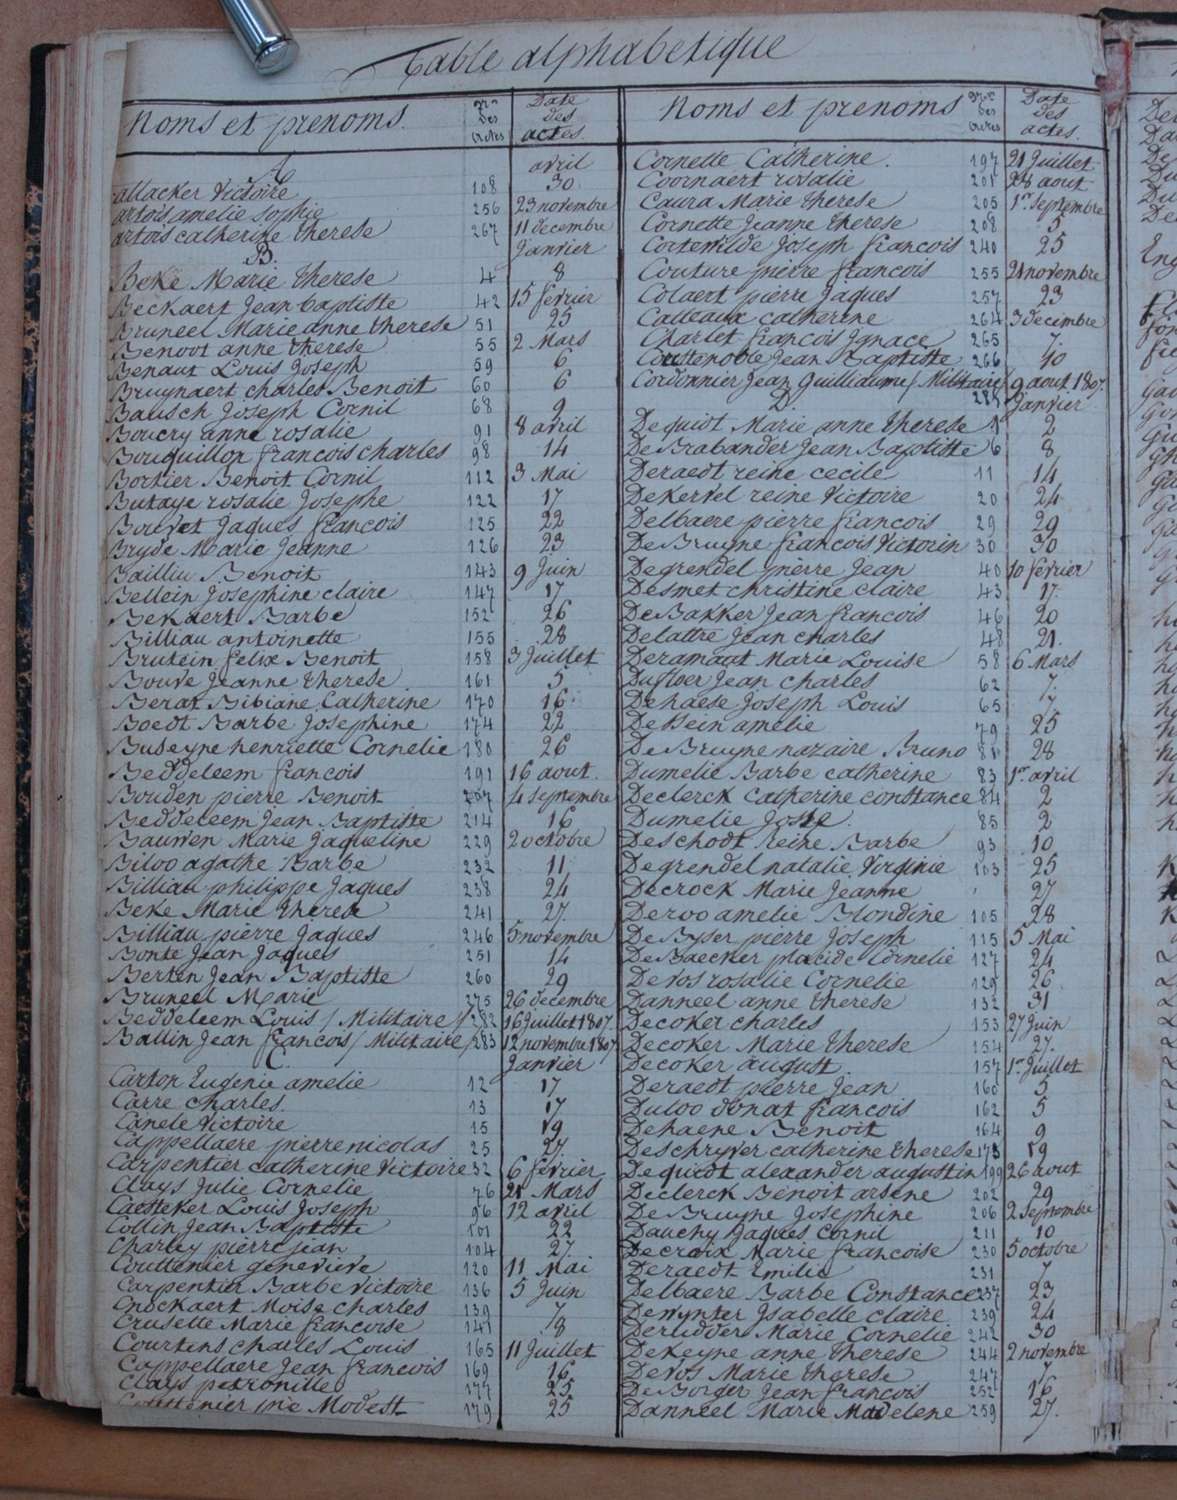 Table alphabetique
Noms et prenoms. Nos des actes Date des actes.
A avril
allacker Victoire 108 30
artois amelie sophie 256 23 novembre
artois catherine therese 267 11 decembre
B. Janvier
Beke Marie therese 4 8
Beckaert Jean baptiste 42 15 fevrier
Bruneel Marie anne therese 51 25
Benoot anne therese 55 2 Mars
Benaut Louis Joseph 59 6
Bruynaert charles Benoit 60 6
Bausch Joseph Cornil 68 9
Boucry anne rosalie 91 8 avril
Bouquillon francois charles 98 14
Bortier Benoit Cornil 112 3 Mai
Butaye rosalie Josephe 122 17
Bouvet Jaques francois 125 22
Bryde Marie Jeanne 126 23
Bailliu Benoit 143 9 Juin
Bellein Josephine claire 147 17
Bekaert Barbe 152 26
Billiau antoinette 155 28
Brutein felix Benoit 158 3 Juillet
Bouve Jeanne therese 161 5
Berat Bibiane Catherine 170 16
Boedt Barbe Josephine 174 22
Buseyne henriette Cornelie 180 26
Beddeleem francois 191 16 aout.
Bouden pierre Benoit 207 4 septembre
Beddeleem Jean Baptiste 214 16
Bauwen Marie Jaqueline 229 2 octobre
Biloo agathe Barbe 232 11
Billiau philippe Jaques 238 24
Beke Marie therese 241 27.
Billiau pierre Jaques 246 5 novembre
Bonte Jean Jaques 251 14
Bertin Jean Baptiste 260 29
Bruneel Marie 275 26 decembre
Beddeleem Louis / Militaire / 282 16 Juillet 1807.
Ballin Jean francois / Militaire / 283 12 novembre 1807
C. Janvier
Carton Eugenie amelie 12 17
Carre charles. 13 17
Canele Victoire 15 19
Cappellaere pierre nicolas 25 27.
Carpentier catherine Victoire 32 6 fevrier
Clays Julie Cornelie 76 21 Mars
Caesteker Louis Joseph 96 12 avril
Collin Jean Baptiste 101 22
Charley pierre jean 104 27.
Couttenier genevieve 120 11 Mai
Carpentier Barbe Victoire 136 5 Juin
Cnockaert Moise charles 139 7
Crusette Marie francoise 141 8
Courtens charles Louis 165 11 Juillet
Cappellaere Jean francois 169 16
Clays petronille 177 25
Couttenier pre Modest 179 25
Noms et prenoms Nos des actes Date des actes.
Cornette Catherine. 197 21 Juillet
Coornaert rosalie 201 28 aout
Caura Marie therese 205 1er septembre
Cornette Jeanne therese 208 5
Cortewilde Joseph francois 240 25
Couture pierre francois 255 21 novembre
Colaert pierre Jaques 257 23
Catteaux catherine 264 3 decembre
Charlet francois Ignace 265 7.
Coustenoble Jean Baptiste 266 10
Cordonnier Jean Guilliaume / Militaire / 9 aout 1807.
D. 284 Janvier
Dequidt Marie anne therese 1 2
DeBrabander Jean Baptiste 6 8
Deraedt reine cecile 11 14
DeKervel reine Victoire 20 24
Delbaere pierre francois 29 29
DeBruyne francois Victorin 30 30
Degrendel pierre Jean 40 10 fevrier
Desmet christine claire 43 17.
DeBakker Jean francois 46 20
Delattre Jean charles 48 21.
Deramaut Marie Louise 58 6 Mars
Dufloer Jean charles 62 7.
Dehaese Joseph Louis 65 7
Dehein amelie 79 25
DeBruyne nazaire Bruno 81 28
Dumelie Barbe catherine 83 1er avril
Declerck Catherine constance 84 2
Dumelie Josse. 85 2
Deschodt Reine Barbe 93 10
Degrendel natalie Virginie 103 25
Decrock Marie Jeanne 27
Deroo amelie Blondine 105 28
DeByser pierre Joseph 115 5 Mai
DeBaecker placide Cornelie 127 24
Devos rosalie Cornelie 129 26
Danneel anne therese 132 31
Decoker charles 153 27 Juin
Decoker Marie therese 154 27.
Decoker august. 157 1er Juillet
Deraedt pierre Jean 160 5
Duloo donat francois 162 5
Dehaene Benoit 164 9
Deschryver catherine therese 173 19
Dequidt alexander augustin 199 26 aout
Declerck Benoit arsene 202 29
DeBruyne Josephine 206 2 Septembre
Dauchy Jaques Cornil 211 10
Decroix Marie francoise 230 5 octobre
Deraedt Emilie 231 7
Delbaere Barbe Constance 237 23
Dewynter Isabelle claire 239 24
Deridder Marie Cornelie 242 30
DeKeyne anne therese 244 2 novembre
Devos Marie therese 247 7
DeBorger Jean francois 252 16
Danneel Marie Madelene 259 27.